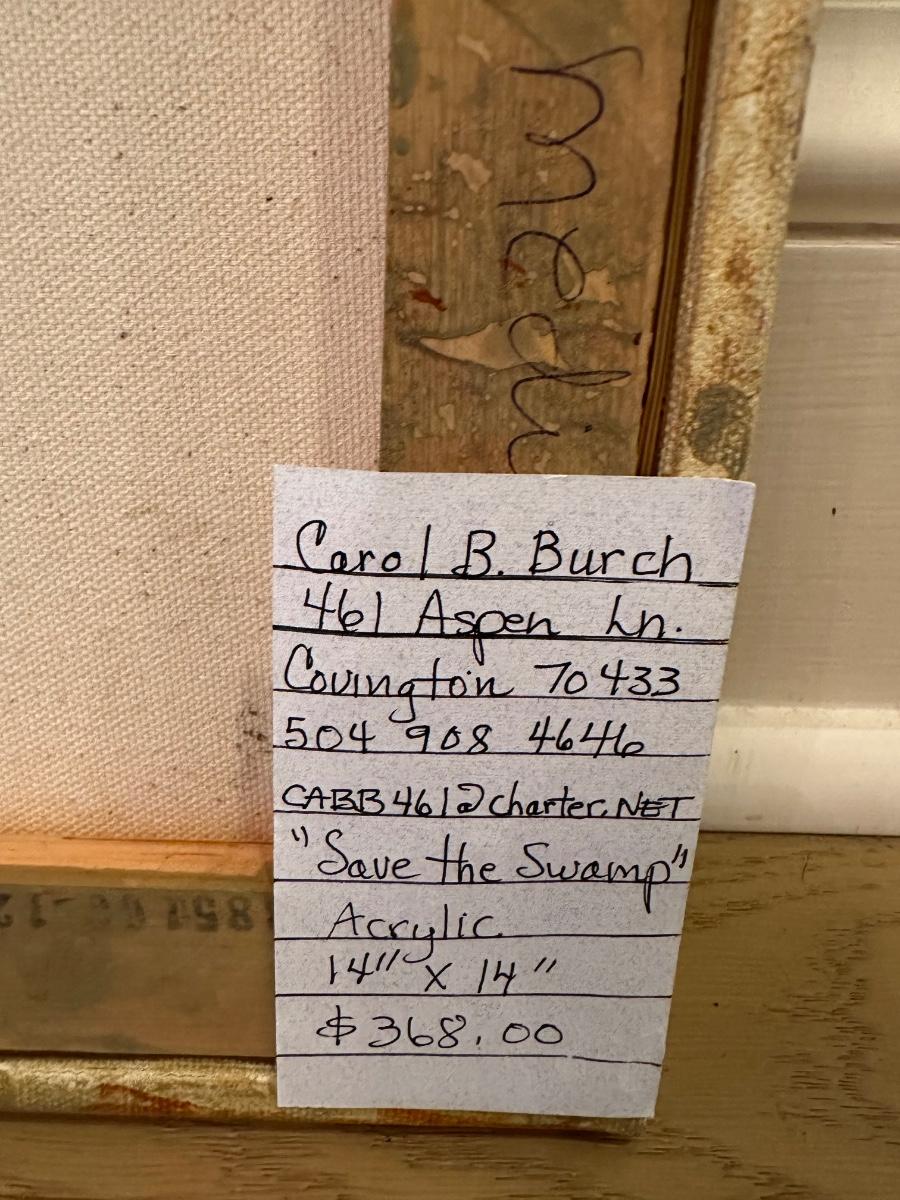 medi
Carol B. Burch
461 Aspen Ln.
Covington 70433
504 908 4646
CABB461@charter.NET
"Save the Swamp"
Acrylic
14" X 14"
$368.00